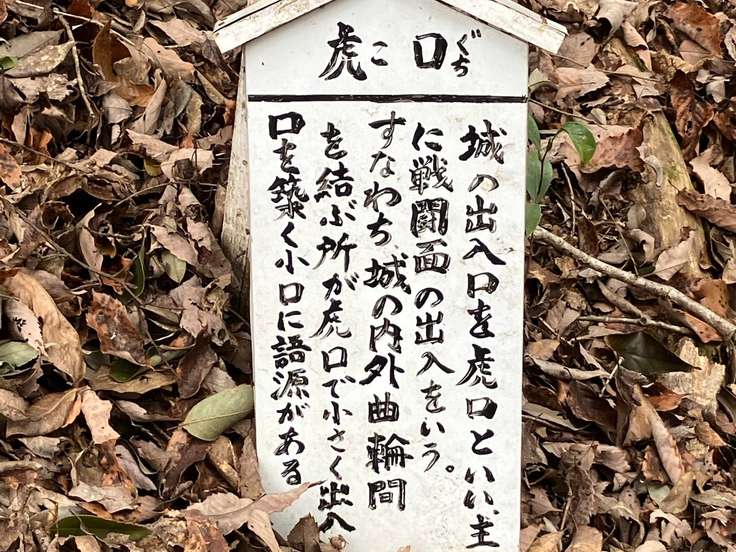 虎こ口ぐち
城の出入口を虎口といい、主
に戦闘面の出入をいう。
すなわち、城の内外曲輪間
を結ぶ所が虎口で小さく出入
口を築く小口に語源がある